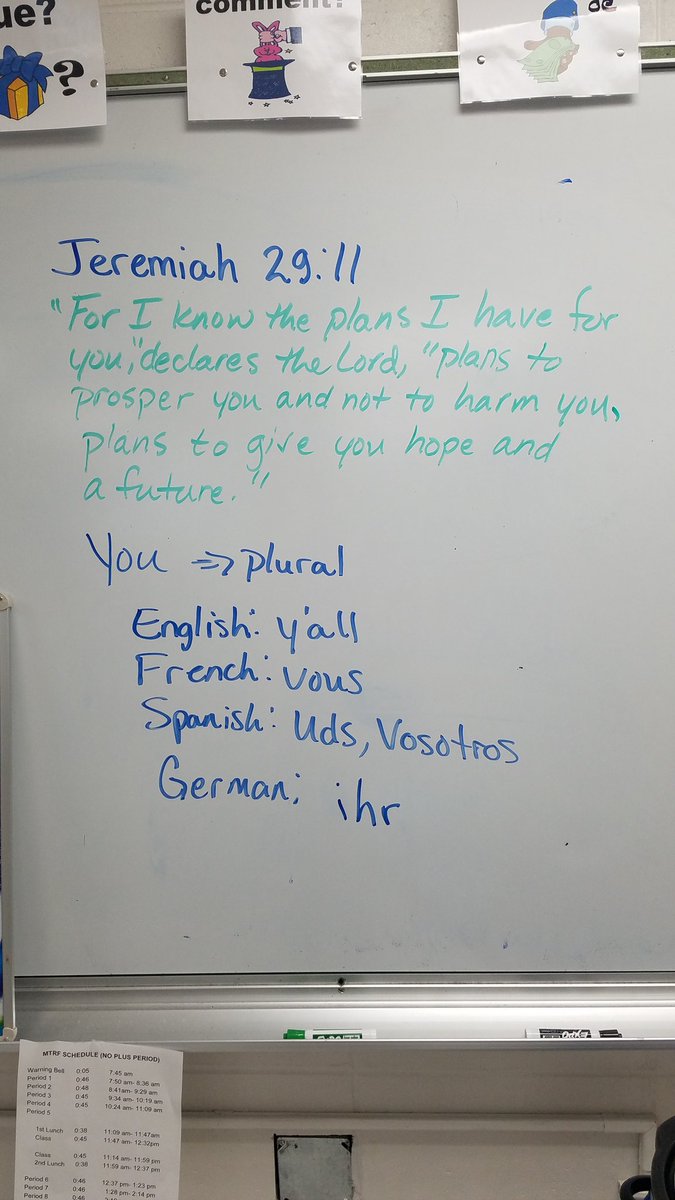 ue?
comment?
?
Jeremiah 29:11
"For I know the plans I have for
you," declares the Lord, "plans to
prosper you and not to harm you,
plans to give you hope and
a future."
You => plural
English: y'all
French: vous
Spanish: Uds, Vosotros
German: ihr
MTRF SCHEDULE (NO PLUS PERIOD)
Warning Bell 0:05 7:45 am
Period 1 0:46 7:50 am- 8:36 am
Period 2 0:48 8:41am- 9:29 am
Period 3 0:45 9:34 am- 10:19 am
Period 4 0:45 10:24 am- 11:09 am
Period 5
1st Lunch 0:38 11:09 am- 11:47am
Class 0:45 11:47 am- 12:32pm
Class 0:45 11:14 am- 11:59 pm
2nd Lunch 0:38 11:59 am- 12:37 pm
Period 6 0:46 12:37 pm- 1:23 pm
Period 7 0:46 1:28 pm- 2:14 pm
Period 8